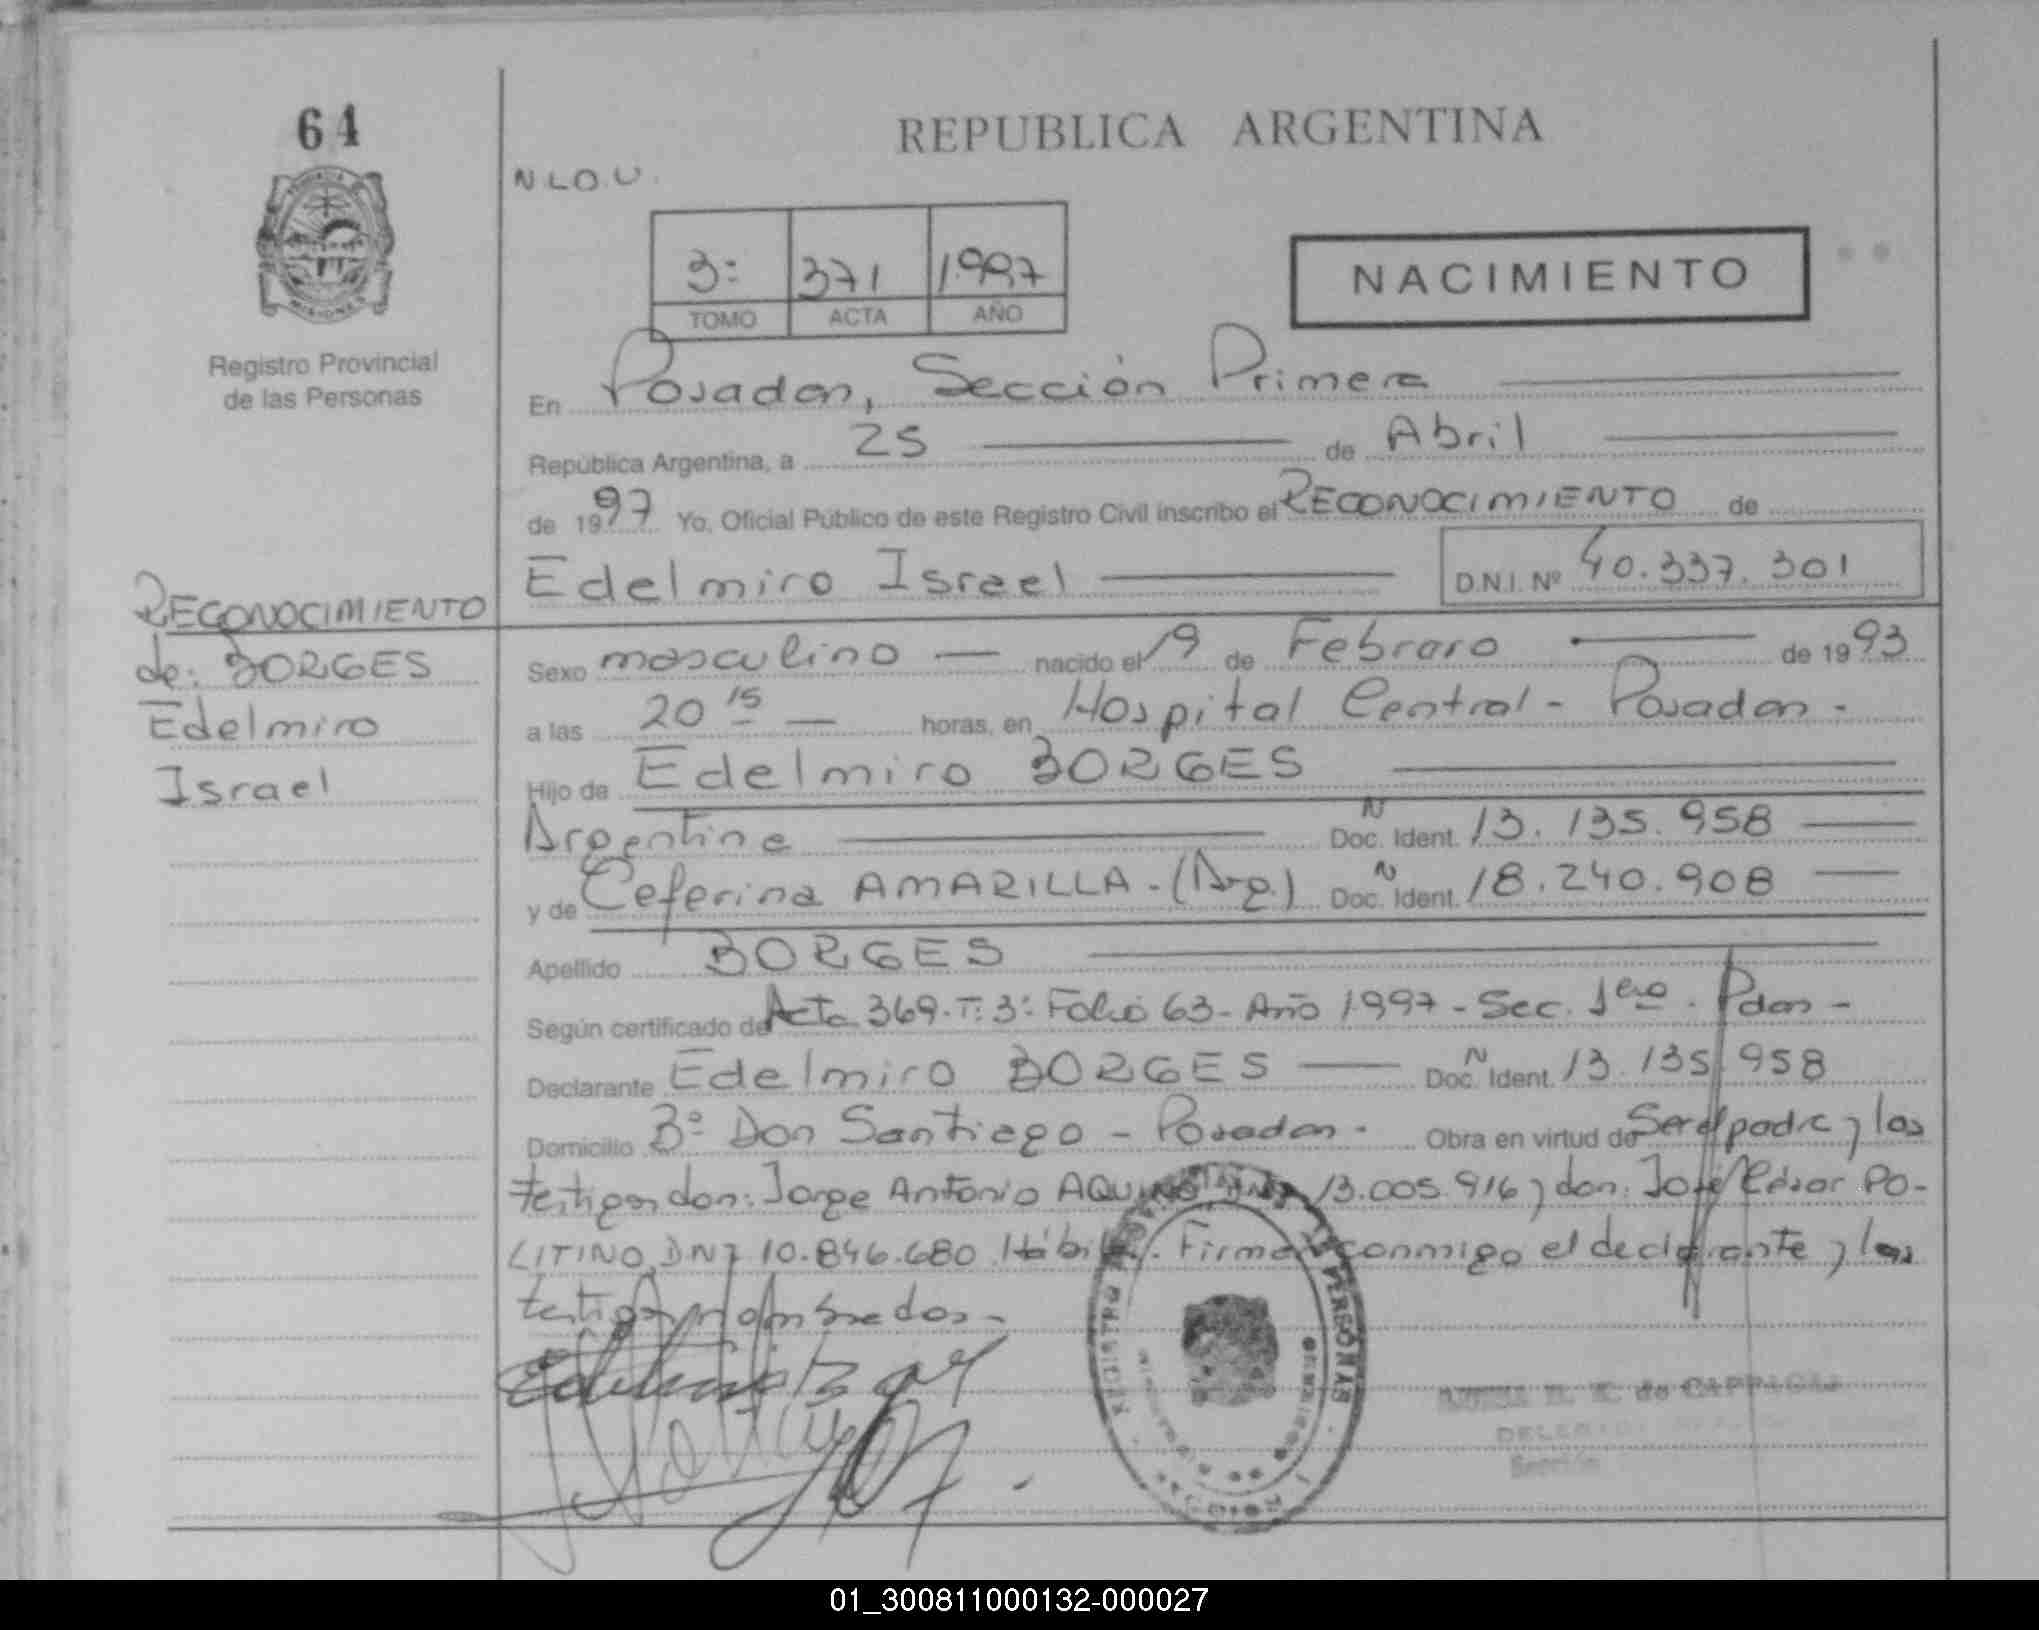 64
REPUBLICA ARGENTINA
N L O . U .
3º 371 1997
TOMO ACTA AÑO
NACIMIENTO
Registro Provincial
de las Personas
En Posadas, Sección Primera
República Argentina, a 25 de Abril
de 1997 Yo, Oficial Público de este Registro Civil inscribo el RECONOCIMIENTO de
Edelmiro Israel D.N.I. Nº 40.337.301
RECONOCIMIENTO
de: BORGES
Edelmiro
Israel
Sexo masculino nacido el 19 de Febrero de 1993
a las 20 15 horas, en Hospital Central - Posadas -
Hijo de Edelmiro BORGES
Argentina Doc. N Ident. 13.135.958
y de Ceferina AMARILLA - (Arg.) Doc. N Ident. 18.240.908
Apellido BORGES
Según certificado de Acta 369. Tº 3º Folio 63 - Año 1997 - Sec. 1era. Pdas -
Declarante Edelmiro BORGES Doc. N Ident. 13.135.958
Domicilio Bº Don Santiago - Posadas - Obra en virtud de Ser el padre y los
testigos don: Jorge Antonio AQUINO DNI 13.005.916 y don: José César PO-
LITINO, DNI 10.846.680 Hábiles. Firman conmigo el declarante y los
testigos nombrados -
REGISTRO PERSONAS
de
DELEG
Sección
01_300811000132-000027